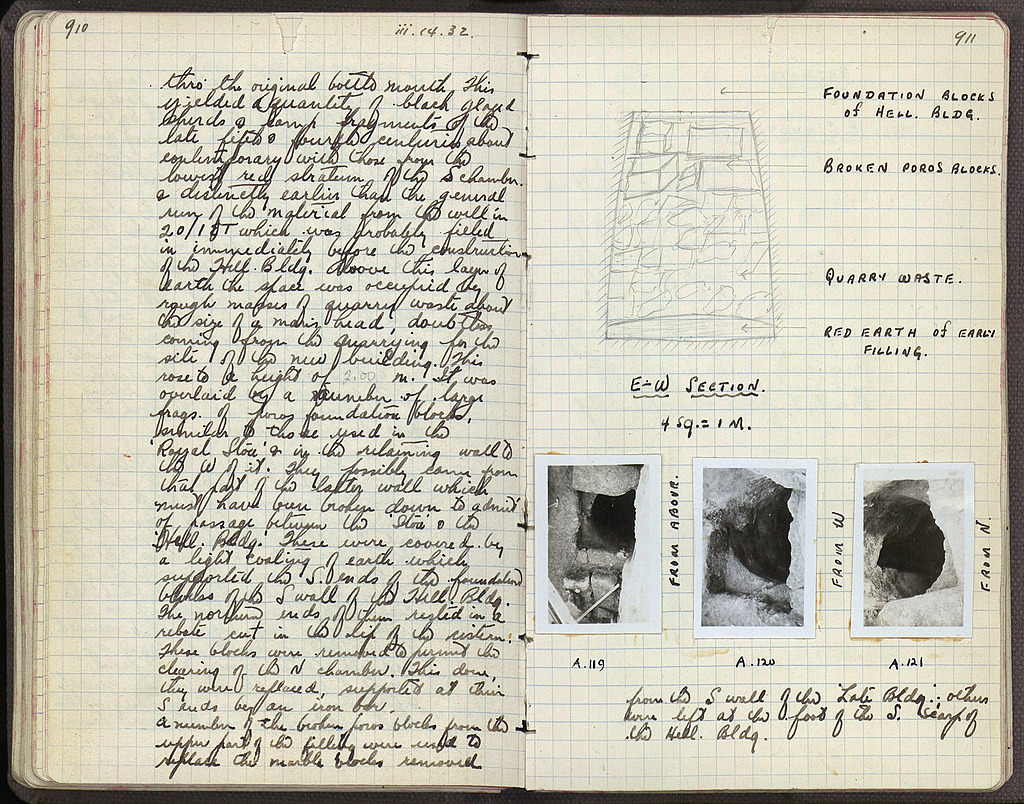 910
iii.14.32.
thro the original bottle mouth. This
yielded a quantity of black glazed
sherds & lamp fragments of the
late fifth & fourth centuries about
contemporary with those from the
lowest red stratum of the S chamber.
& distinctly earlier than the general
run of the material from the well in
20/ which was probably filled
in immediately before the construction
of the Hell. Bldg. Above this layer of
earth the space was occupied by
rough masses of quarry waste about
the size of a mans head, doubtless
coming from the quarrying for the
site of the new building. This
rose to a height of 2.00 m. It was
overlaid by a number of large
frags. of poros foundation blocks,
similar to those used in the
'Royal Stoa' & in the retaining wall to
the W of it. They possibly came from
that part of the latter wall which
must have been broken down to admit
of passage between the Stoa & the
Hell. Bldg. These were covered by
a light coating of earth which
supported the S. ends of the foundation
blocks of the S wall of the Hell. Bldg.
The northern ends of them rested in a
rebate cut in the lip of the cistern.
These blocks were removed to permit the
clearing of the N chamber. This done,
they were replaced, supported at their
S ends by an iron bar.
A number of the broken poros blocks from the
upper part of the filling were used to
replace the marble blocks removed
911
FOUNDATION BLOCKS
OF HELL. BLDG.
BROKEN POROS BLOCKS.
QUARRY WASTE.
RED EARTH OF EARLY
FILLING.
E-W SECTION.
4 SQ. = 1 M.
FROM ABOVE.
FROM W
FROM N.
A.119
A.120
A.121
from the S wall of the 'Late Bldg.'; others
were left at the foot of the S. scarp of
the Hell. Bldg.